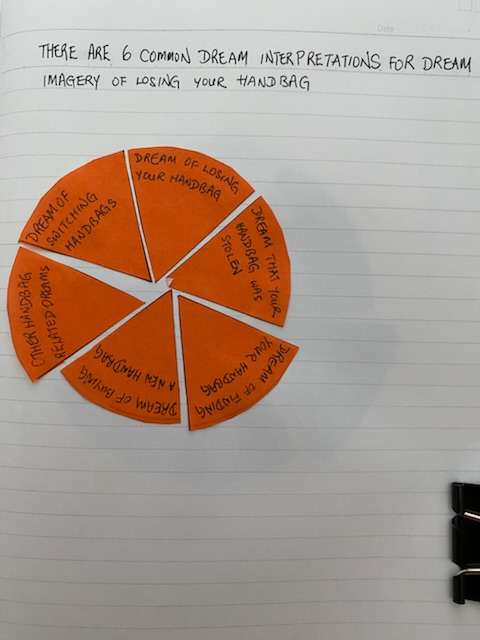 Date
THERE ARE 6 COMMON DREAM INTERPRETATIONS FOR DREAM
IMAGERY OF LOSING YOUR HANDBAG
DREAM OF LOSING
YOUR HANDBAG
DREAM THAT YOUR
HANDBAG WAS
STOLEN
DREAM OF FINDING
YOUR HANDBAG
DREAM OF BUYING
A NEW HANDBAG
OTHER HANDBAG
RELATED DREAMS
DREAM OF
SWITCHING
HANDBAGS